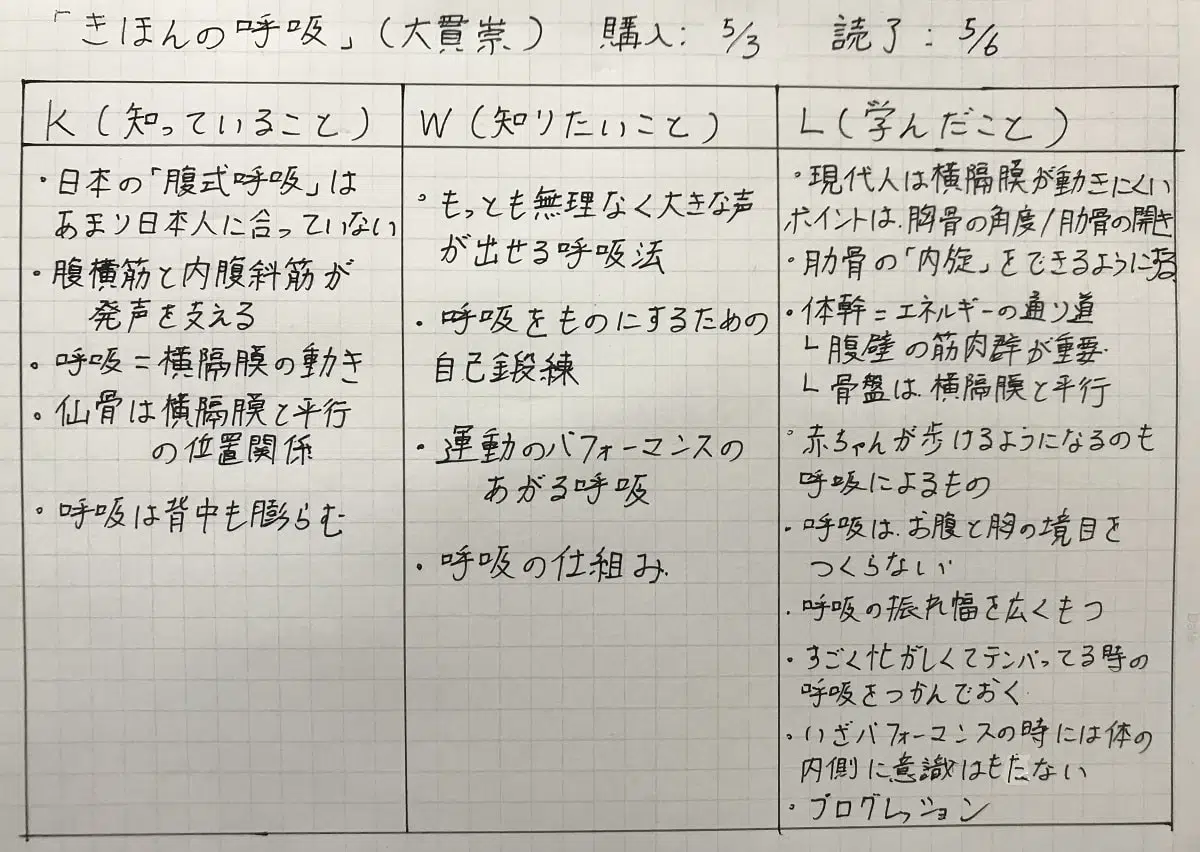 「きほんの呼吸」(大貫崇) 購入: 5/3 読了: 5/6
K(知っていること)
・日本の「腹式呼吸」は
あまり日本人に合っていない
・腹横筋と内腹斜筋が
発声を支える
・呼吸=横隔膜の動き
・仙骨は横隔膜と平行
の位置関係
・呼吸は背中も膨らむ
W(知りたいこと)
・もっとも無理なく大きな声
が出せる呼吸法
・呼吸をものにするための
自己鍛練
・運動のパフォーマンスの
あがる呼吸
・呼吸の仕組み
L(学んだこと)
・現代人は横隔膜が動きにくい
ポイントは、胸骨の角度/肋骨の開き
・肋骨の「内旋」をできるようにする
・体幹=エネルギーの通り道
└腹壁の筋肉群が重要
└骨盤は、横隔膜と平行
・赤ちゃんが歩けるようになるのも
呼吸によるもの
・呼吸は、お腹と胸の境目を
つくらない
・呼吸の振れ幅を広くもつ
・すごく忙がしくてテンパってる時の
呼吸をつかんでおく
・いざパフォーマンスの時には体の
内側に意識はもたない
・プログレッション